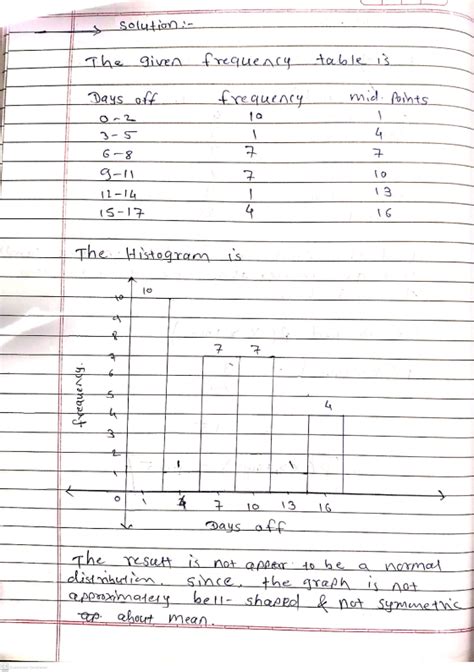 → solution:-
The given frequency table is
Days off frequency mid. Points
0-2 10 1
3-5 1 4
6-8 7 7
9-11 7 10
12-14 1 13
15-17 4 16
The Histogram is
10
10
9
8
7 7 7
6
5
4 4
3
2
1 1 1
0 1 4 7 10 13 16
frequency.
Days off
The result is not appear to be a normal
distribution. since, the graph is not
approximately bell-shaped & not symmetric
about mean.